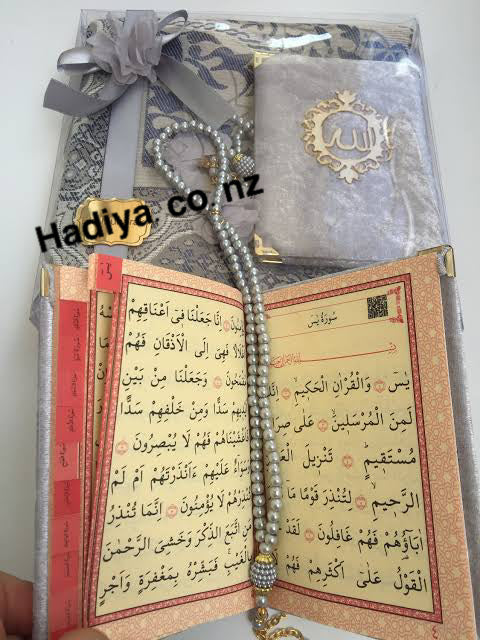 Hadiya.co.nz
الله
سُورَةُ يٰسٓ
يٰسٓ وَالْقُرْاٰنِ الْحَكيمِ
لَمِنَ الْمُرْسَلينَ عَلٰى
مُسْتَقيمٍ تَنْزيلَ
الرَّحيمِ لِتُنْذِرَ قَوْمًا مَٓا
اٰبَٓاؤُهُمْ فَهُمْ غَافِلُونَ لَقَدْ
الْقَوْلُ عَلٰٓى اَكْثَرِهِمْ فَهُمْ
اِنَّا جَعَلْنَا فٓي اَعْنَاقِهِمْ
فَهِيَ اِلَى الْاَذْقَانِ فَهُمْ
وَجَعَلْنَا مِنْ بَيْنِ
سَدًّا وَمِنْ خَلْفِهِمْ سَدًّا
فَاَغْشَيْنَاهُمْ فَهُمْ لَا يُبْصِرُونَ
عَلَيْهِمْ ءَاَنْذَرْتَهُمْ اَمْ لَمْ
لَا يُؤْمِنُونَ اِنَّمَا تُنْذِرُ
مَنِ اتَّبَعَ الذِّكْرَ وَخَشِيَ الرَّحْمٰنَ
فَبَشِّرْهُ بِمَغْفِرَةٍ وَاَجْرٍ